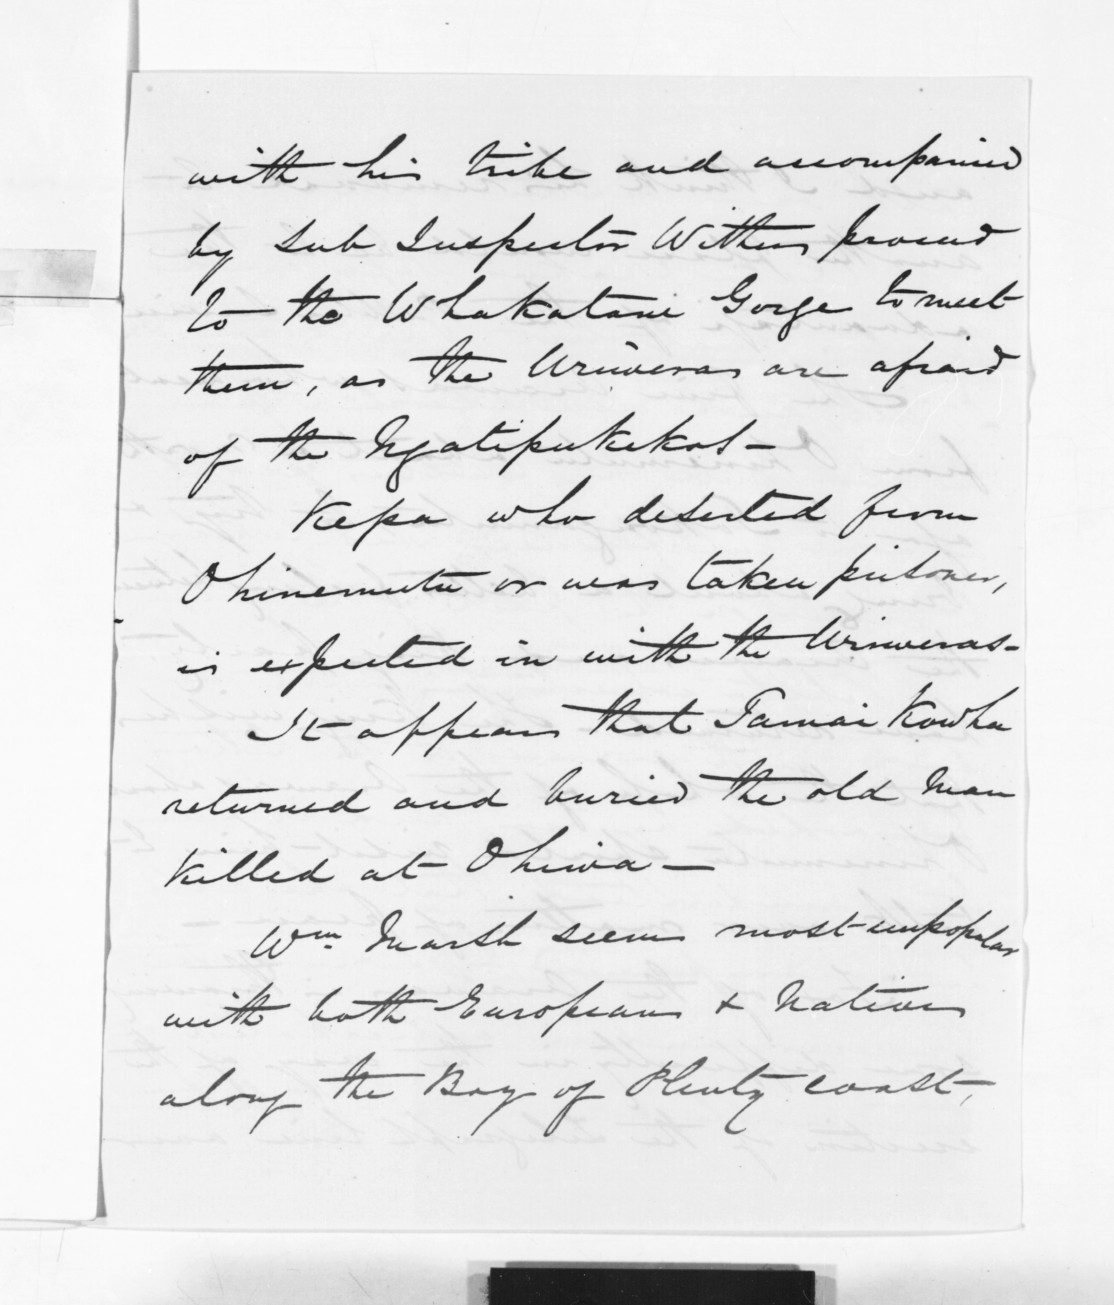 with his tribe and accompanied
by Sub Inspector Withers proceed
to the Whakatane Gorge to meet
them, as the Uriweras are afraid
of the Ngatipukekos—
Kepa who deserted from
Ohinemutu or was taken prisoner,
is expected in with the Uriweras—
It appears that Tamai Kowha
returned and buried the old man
killed at Ohiwa—
Wm Marsh seems most unpopular
with both Europeans & Natives
along the Bay of Plenty coast,